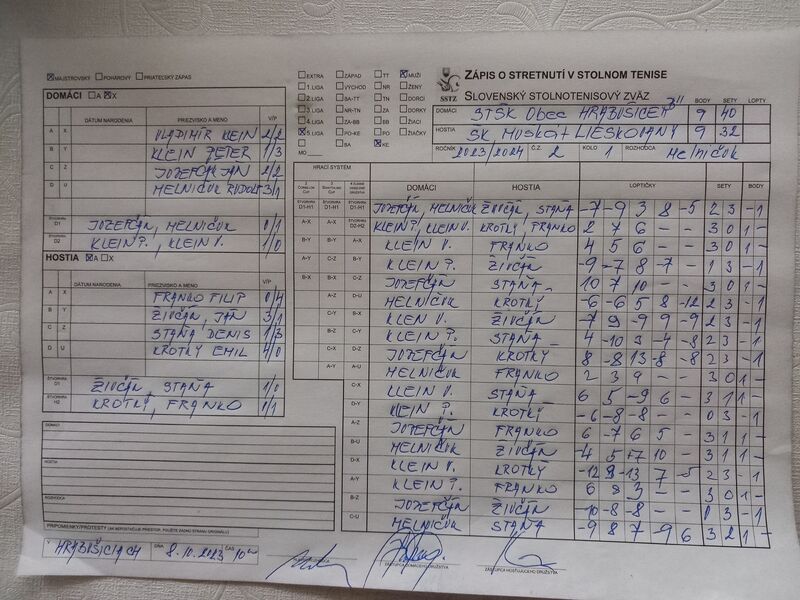 MAJSTROVSKÝ POHÁROVÝ PRIATEĽSKÝ ZÁPAS
EXTRA ZÁPAD TT MUŽI
1. LIGA VÝCHOD NR ŽENY
2. LIGA BA-TT TN DORCI
3. LIGA NR-TN ZA DORKY
4. LIGA ZA-BB BB ŽIACI
5. LIGA PO-KE PO ŽIAČKY
BA KE
MO
SSTZ
ZÁPIS O STRETNUTÍ V STOLNOM TENISE
SLOVENSKÝ STOLNOTENISOVÝ ZVÄZ
BODY SETY LOPTY
DOMÁCI STŠK Obec HRABUŠICE "B" 9 40
HOSTIA SK Moskat LIESKOVANY 9 32
ROČNÍK 2023/2024 Č.Z. 2 KOLO 1 ROZHODCA Melničuk
DOMÁCI A X
DÁTUM NARODENIA PRIEZVISKO A MENO V/P
A X VLADIMÍR KLEIN 2/2
B Y KLEIN PETER 1/3
C Z JOZEFČÁK JÁN 2/2
D U MELNIČUK RUDOLF 3/1
ŠTVORHRA D1 JOZEFČÁK, MELNIČUK 0/1
ŠTVORHRA D2 KLEIN P., KLEIN V. 1/0
HOSTIA A X
DÁTUM NARODENIA PRIEZVISKO A MENO V/P
A X FRANKO FILIP 0/4
B Y ŽIVČÁK, JÁN 3/1
C Z STAŇA DENIS 1/3
D U KROTKÝ EMIL 4/0
ŠTVORHRA D1 ŽIVČÁK, STAŇA 1/0
ŠTVORHRA H2 KROTKÝ, FRANKO 0/1
DOMÁCI
HOSTIA
ROZHODCA
PRIPOMIENKY/PROTESTY (AK NEPOSTAČUJE PRIESTOR, POUŽITE ZADNÚ STRANU ORIGINÁLU)
V HRABUŠICIACH DŇA 8.10.2023 ČAS 10
ZÁSTUPCA DOMÁCEHO DRUŽSTVA
ZÁSTUPCA HOSŤUJÚCEHO DRUŽSTVA
HRACÍ SYSTÉM
DOMÁCI HOSTIA LOPTIČKY SETY BODY
D1-H1 D1-H1 JOZEFČÁK, MELNIČUK ŽIVČÁK, STAŇA -7 -9 3 8 -5 2 3 - 1
A-X D2-H2 KLEIN P., KLEIN V. KROTKÝ, FRANKO 2 7 6 - - 3 0 1 -
B-Y A-X KLEIN V. FRANKO 4 5 6 - - 3 0 1 -
KLEIN P. ŽIVČÁK -9 -7 8 -7 - 1 3 - 1
JOZEFČÁK STAŇA 10 7 10 - - 3 0 1 -
MELNIČUK KROTKÝ -6 -6 5 8 -12 2 3 - 1
KLEIN V. ŽIVČÁK -7 9 -9 9 -9 2 3 - 1
KLEIN P. STAŇA 4 -10 3 -4 -8 2 3 - 1
JOZEFČÁK KROTKÝ 8 -8 13 -8 -8 2 3 - 1
MELNIČUK FRANKO 2 3 9 - - 3 0 1 -
C-X KLEIN V. STAŇA 6 5 -9 6 - 3 1 1 -
D-Y KLEIN P. KROTKÝ -6 -8 -8 - - 0 3 - 1
A-Z JOZEFČÁK FRANKO 6 -7 6 5 - 3 1 1 -
B-U MELNIČUK ŽIVČÁK -4 5 7 10 - 3 1 1 -
D-X KLEIN V. KROTKÝ -12 9 -13 7 -5 2 3 - 1
A-Y KLEIN P. FRANKO 6 8 3 - - 3 0 1 -
B-Z JOZEFČÁK ŽIVČÁK -10 -8 -8 - - 0 3 - 1
C-U MELNIČUK STAŇA -9 8 7 -9 6 3 2 1 -